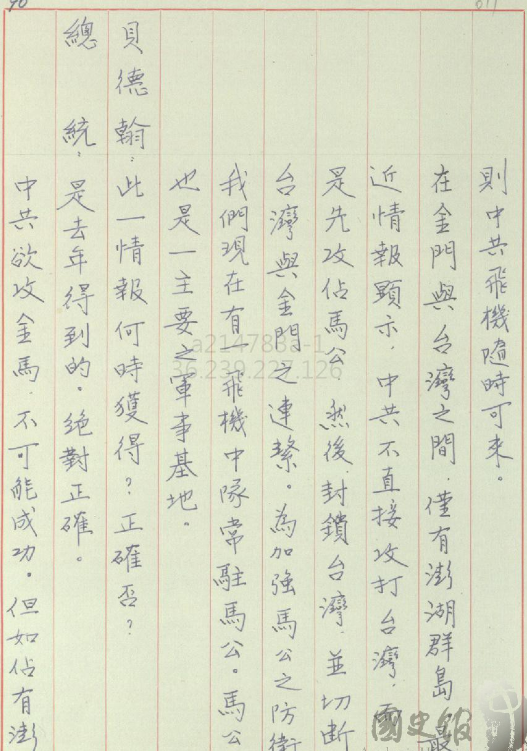 則中共飛機隨時可來。
在金門與台灣之間,僅有澎湖群島,最
近情報顯示,中共不直接攻打台灣,而
是先攻佔馬公,然後封鎖台灣,並切斷
台灣與金門之連繫。為加強馬公之防衛
我們現在有一飛機中隊常駐馬公。馬公
也是一主要之軍事基地。
貝德翰:此一情報何時獲得?正確否?
總統:是去年得到的。絕對正確。
中共欲攻金馬,不可能成功。但如佔有澎
a214788a-1
36.239.227.126
國史館